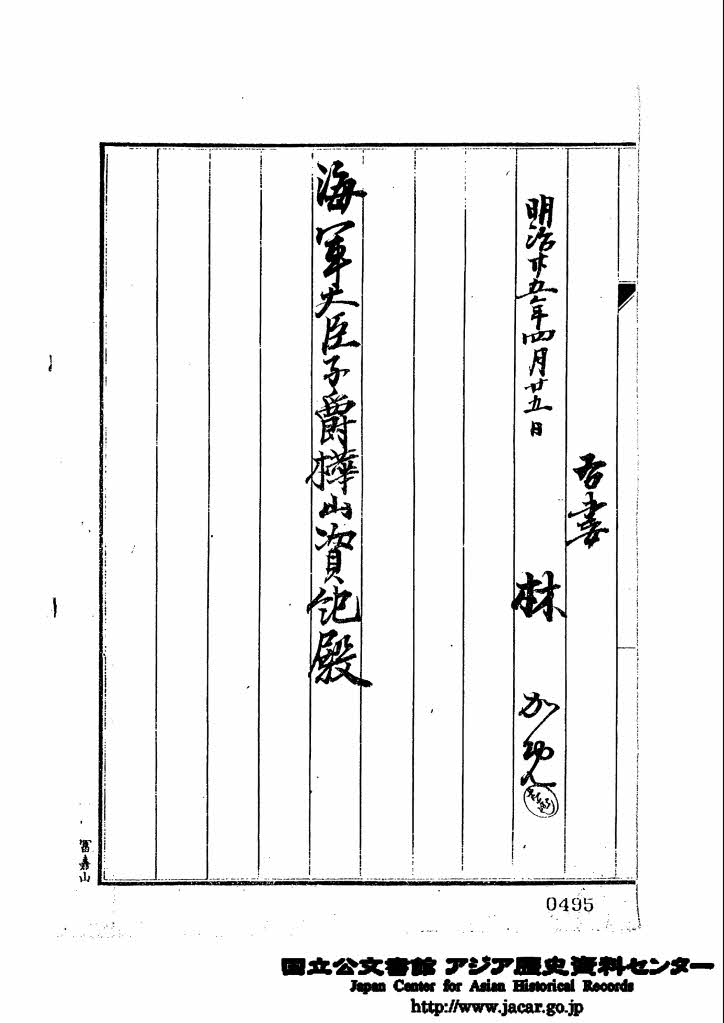 右妻
明治廿五年四月廿五日 林
海軍大臣子爵樺山資紀殿
0495
国立公文書館 アジア歴史資料センター
Japan Center for Asian Historical Records
http://www.jacar.go.jp